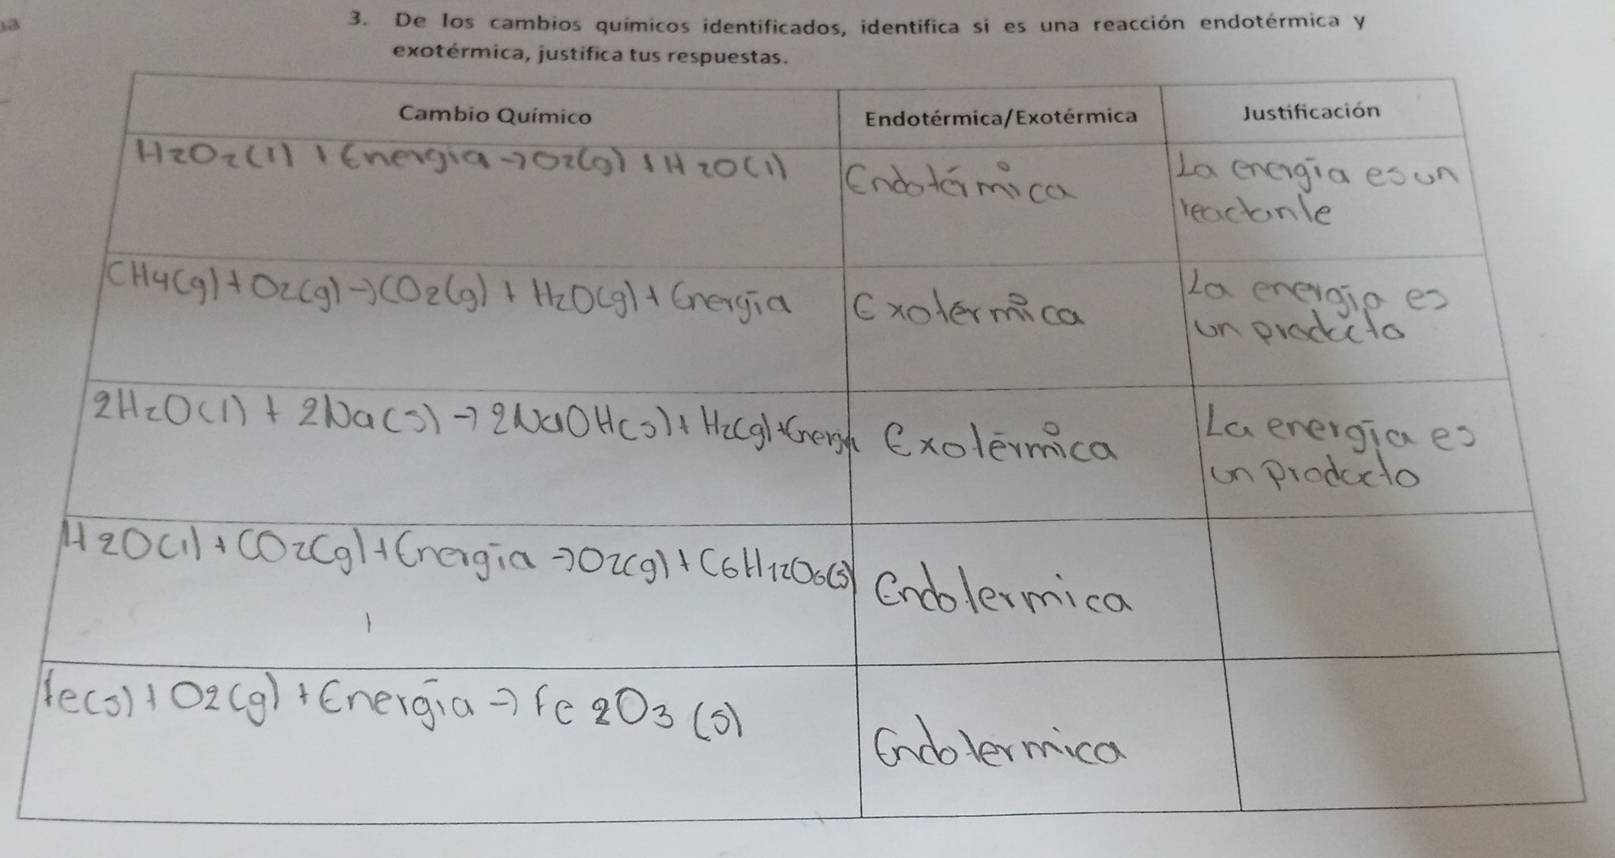 3. De los cambios químicos identificados, identifica si es una reacción endotérmica y
exotérmica, justifica tus respuestas.
Cambio Químico Endotérmica/Exotérmica Justificación
H2O2(l) + Energia → O2(g) + H2O(l) Endotérmica La energía es un
reactante
CH4(g) + O2(g) → CO2(g) + H2O(g) + Energía Exotérmica La energía es
un producto
2H2O(l) + 2Na(s) → 2NaOH(s) + H2(g) + Energía Exotérmica La energía es
un producto
H2O(l) + CO2(g) + Energía → O2(g) + C6H12O6(s) Endotermica
Fe(s) + O2(g) + Energía → Fe2O3(s) Endotermica